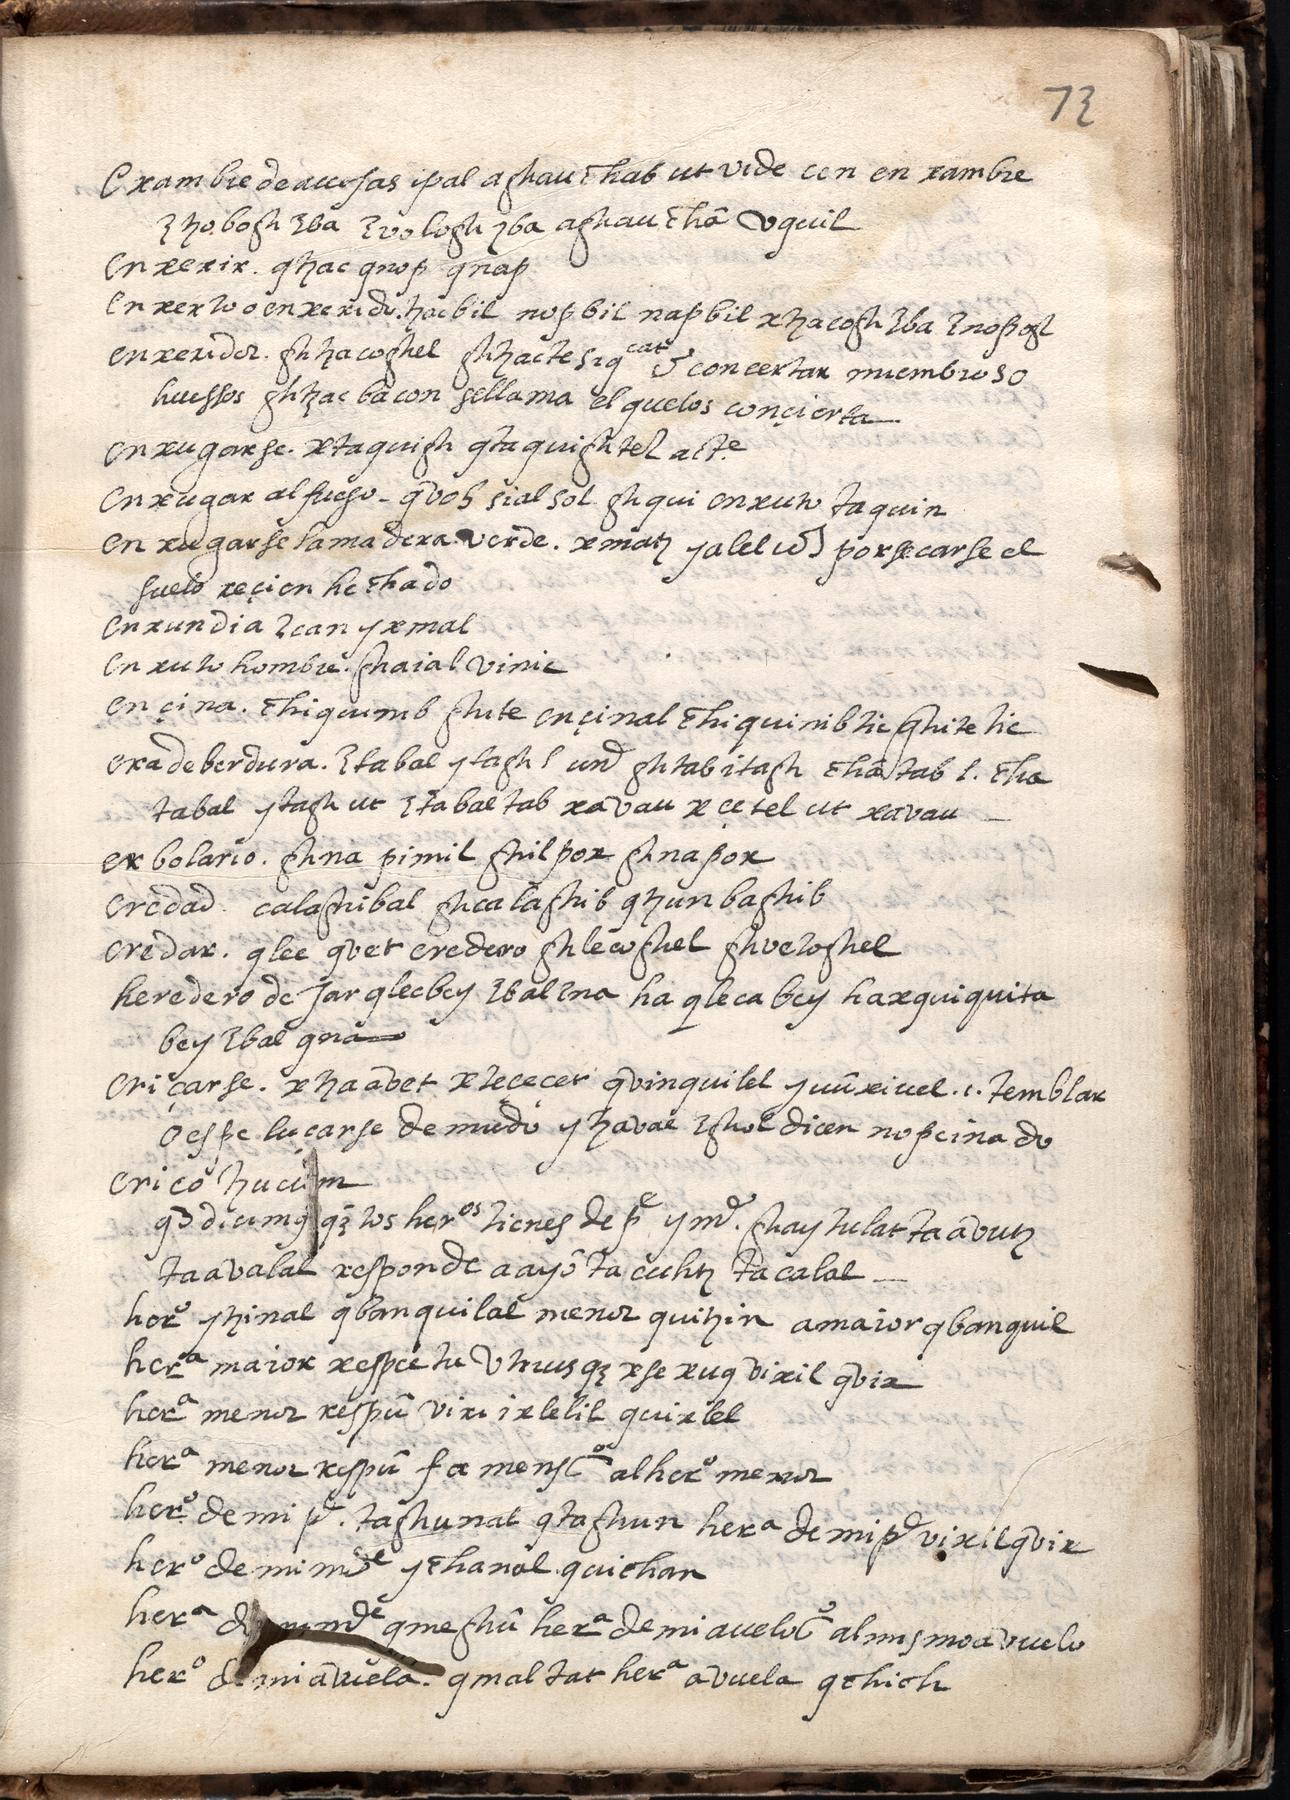 73
Exambre de auejas ipal aghau chab ut vide cen en xambre
ꜣtzobogh ꜣba ꜣvologh ꜣba aghau chã vquil
Enxerir. qtzac qnop qnap
Enxerto o enxerido. tzacbil nopbil napbil xtzacogh ꜣba ꜣnopogh
enxeridor. ghtzacoghel ghtzacte siq concertar miembros o
huessos ghtzac bac con sellama el quelos concierta
enxugarse. xtaquigh qtaquightel act.e
Enxugar al fuego - qvoh si al sol ghqui enxuto taquin
enxugarse la madera verde. xmatz yalel por secarse el
suelo reçien hechado
Enxundia ꜣcan yxmal
Enxuto hombre. ghaial vinic
ençina. chiquinib ghite ençinal chiquinibtic ghitetic
era de berdura. ꜣtabal ytagh l ghtab itagh chãtab l. cha
tabal ytagh ut ꜣtabal tab xavau xçetel ut xavau
erbolario. ghna pimil ghilpox ghnapox
eredad calaghibal ghcalaghib qtzunbaghib
eredar. qlec qvet eredero ghlecoghel ghvetoghel
heredero dejar qlecbey ꜣbal ꜣna ha qlecabey haxquiquita
bey ꜣbal qna
eriçarse. xtzaavet xteçeçet qvinquilel yuũxivel .i. temblar
o espelucarse de miedo ytzaval ꜣghol dicen nopeinado
ericõ tzucum
los her.os tienes de p.e y m.e. ghay tulat ta avutz
ta avalal responde aayõ ta cuhtz ta calal
her.o ytzinal qbanquilal menor quitzin a maior qbanquil
her.a maior respectu vtriusq xse xuq vixil qvix
her.a menor respũ viri ixlelil quixlel
her.a menor respũ al her.o menor
her.o de mi p.e. taghunal qtaghun her.a de mi p.e vixil qvix
her.o de mi m.e ychanol quichan
her.a m.e qmeghũ her.a de mi auelo al mismo avuelo
her.o de mi avuela. qmaltat her.a avuela qchich